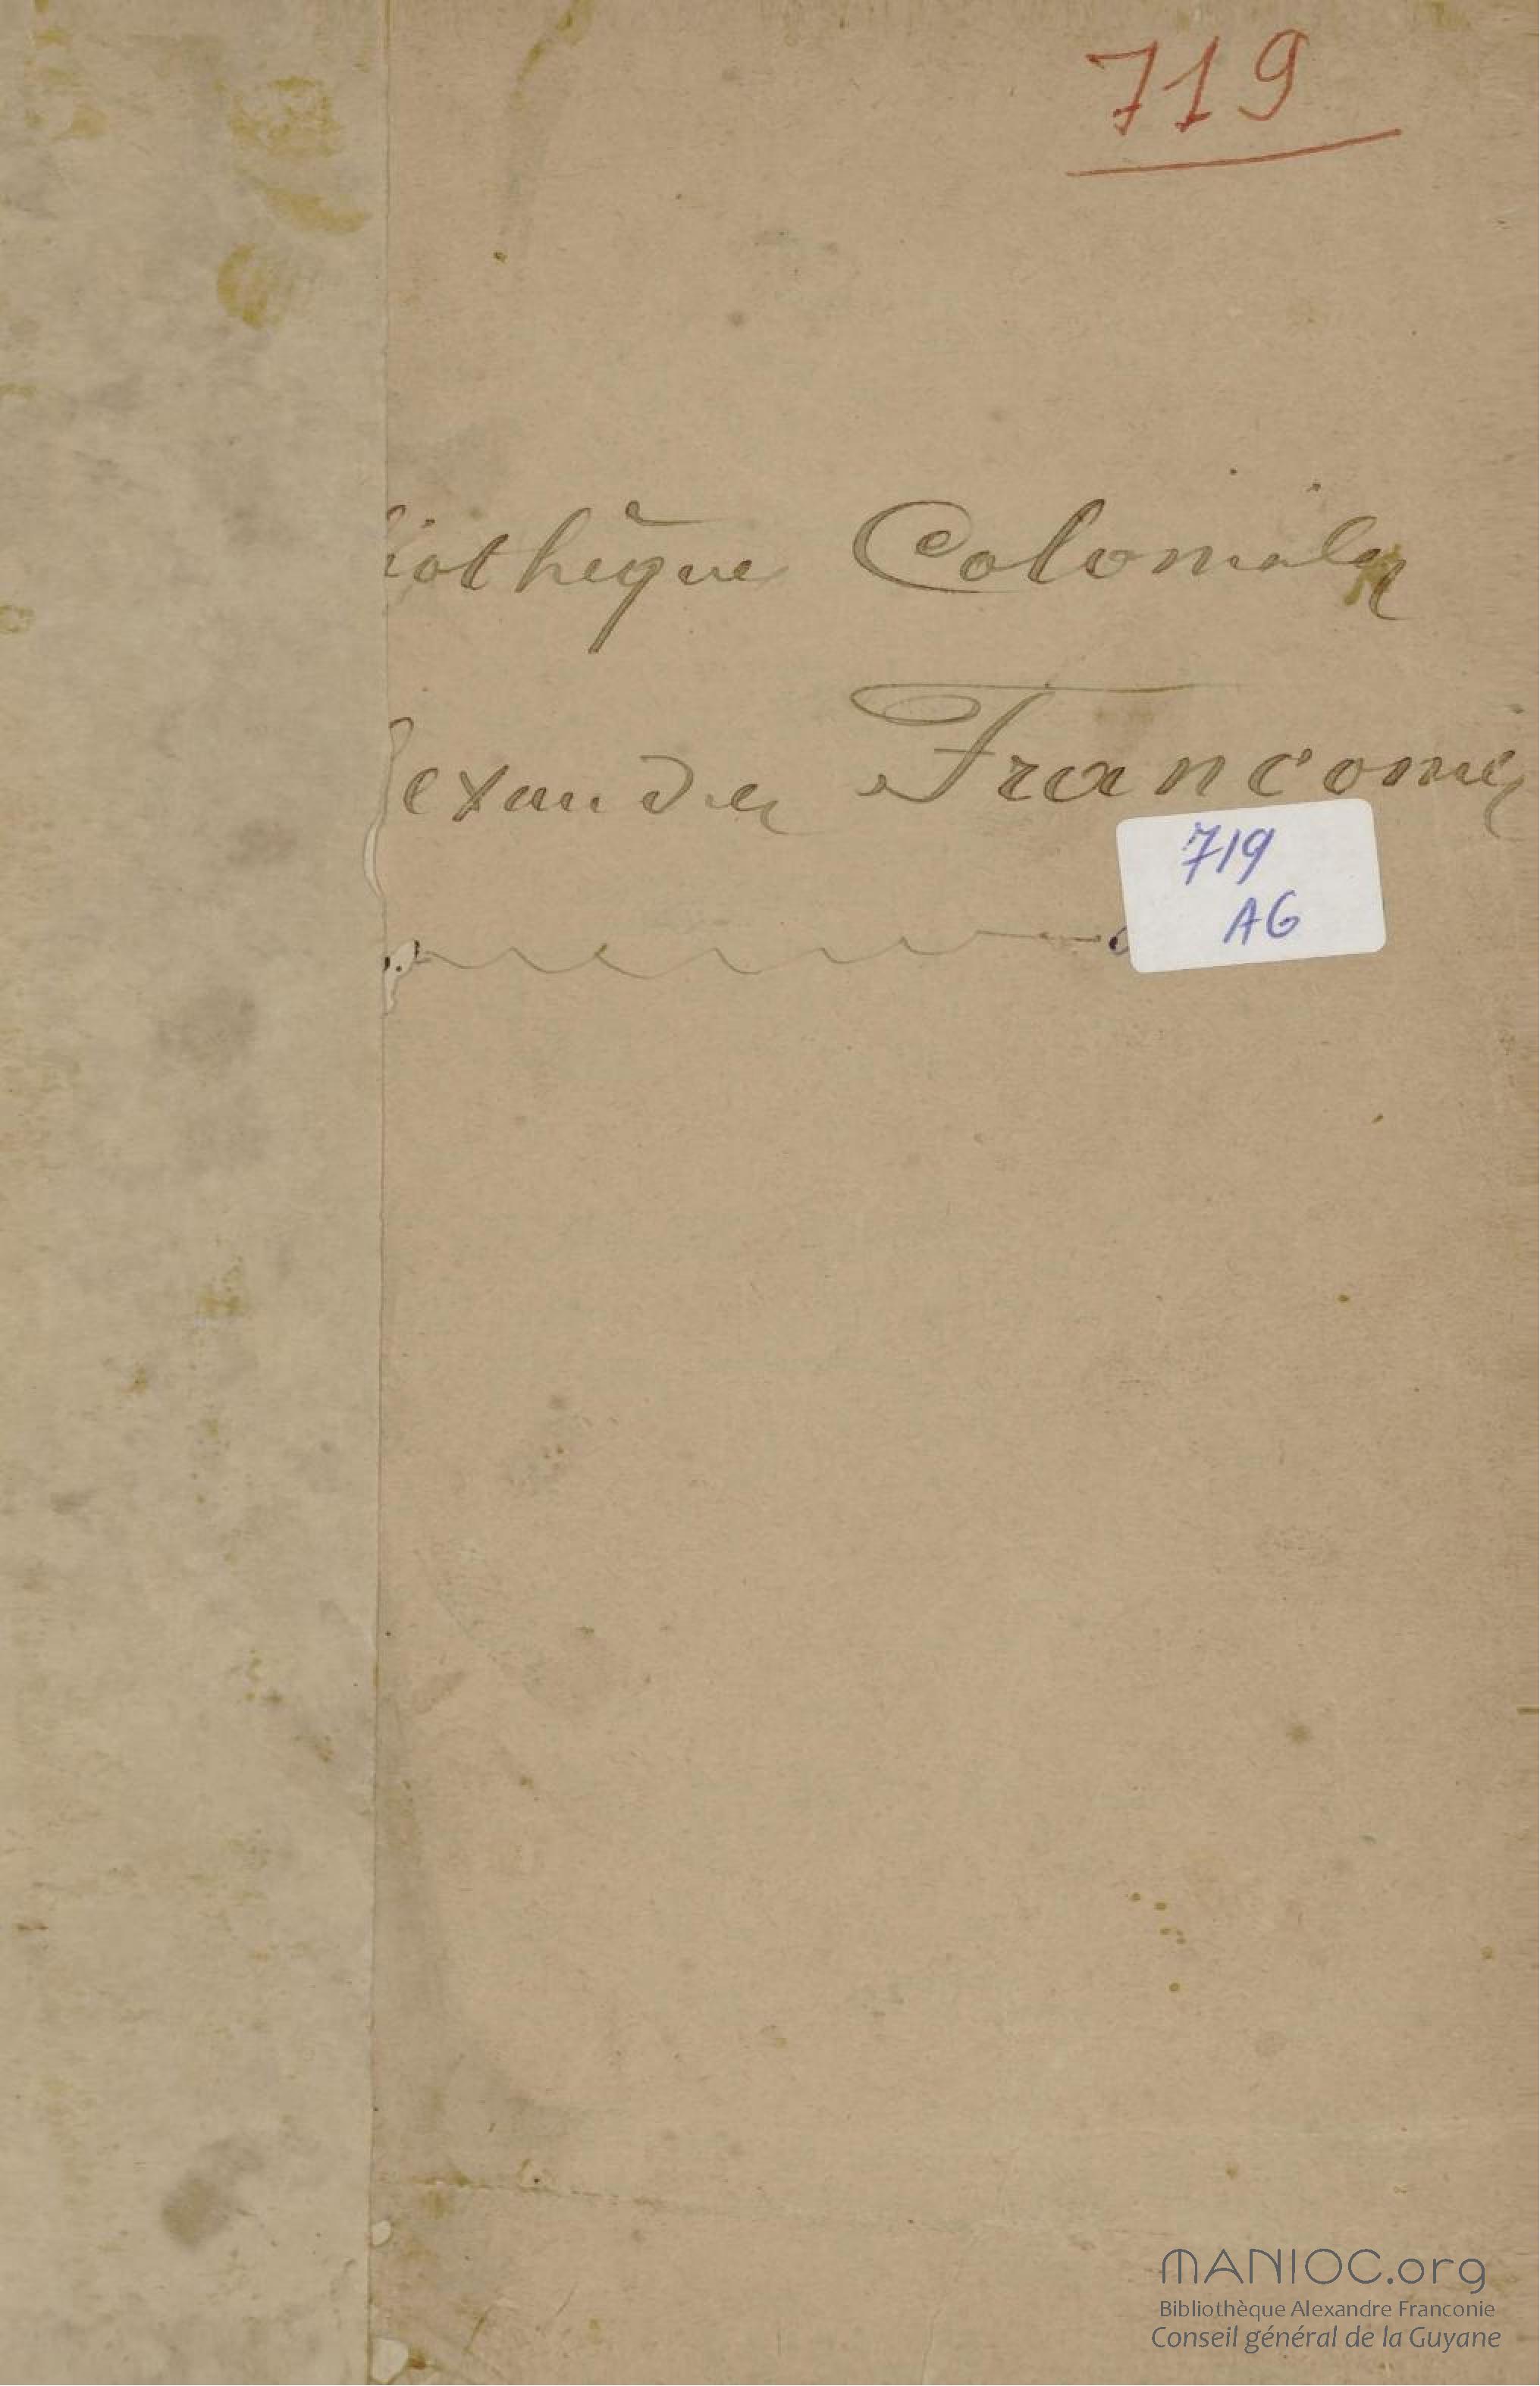 719
liothèque Coloniale
lexandre Franconie
719
AG
MANIOC.org
Bibliothèque Alexandre Franconie
Conseil général de la Guyane